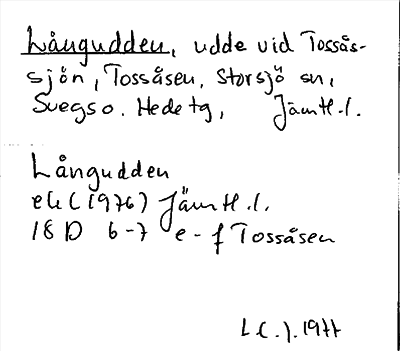 Långudden, udde vid Tossås-
sjön, Tossåsen, Storsjö sn,
Svegs o. Hede tg, Jämtl. l.
Långudden
ek (1976) Jämtl. l.
18 D 6-7 e-f Tossåsen
1977